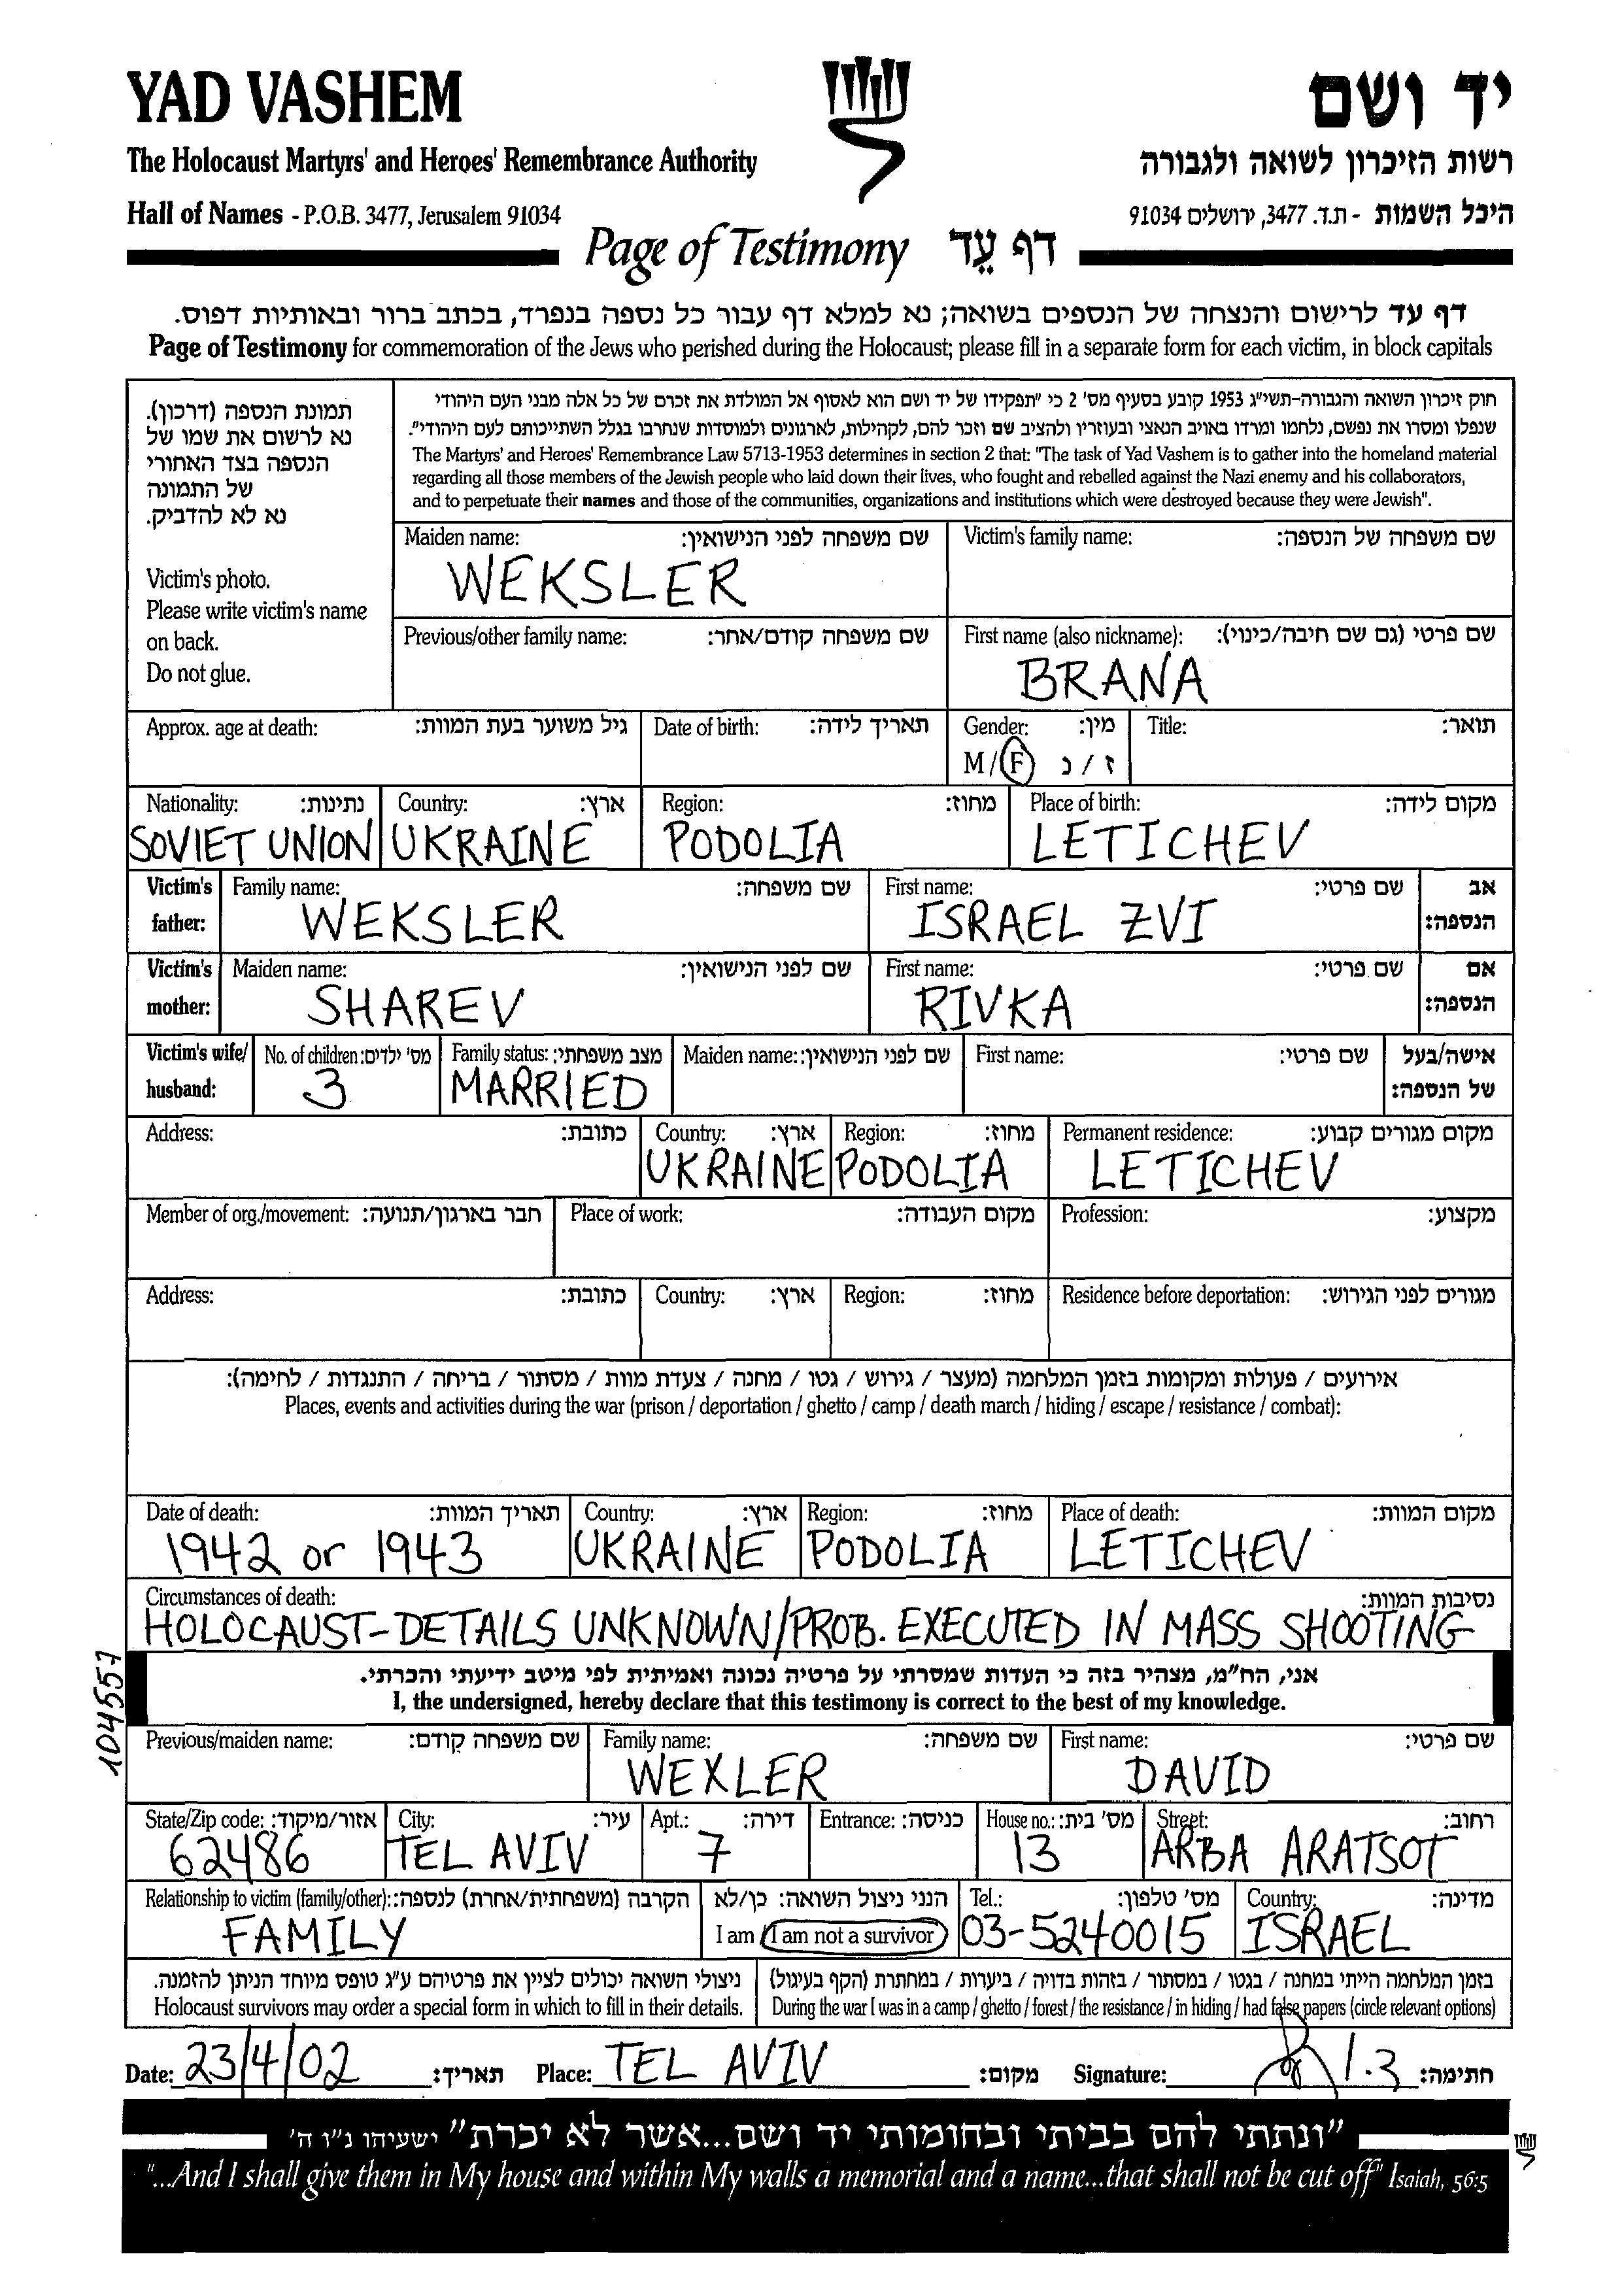 YAD VASHEM
יד ושם
The Holocaust Martyrs' and Heroes' Remembrance Authority
רשות הזיכרון לשואה ולגבורה
Hall of Names - P.O.B. 3477, Jerusalem 91034
היכל השמות - ת.ד. 3477, ירושלים 91034
Page of Testimony דף עֵד
דף עד לרישום והנצחה של הנספים בשואה; נא למלא דף עבור כל נספה בנפרד, בכתב ברור ובאותיות דפוס.
Page of Testimony for commemoration of the Jews who perished during the Holocaust; please fill in a separate form for each victim, in block capitals
תמונת הנספה (דרכון).
נא לרשום את שמו של
הנספה בצד האחורי
של התמונה
נא לא להדביק.
Victim's photo.
Please write victim's name
on back.
Do not glue.
חוק זיכרון השואה והגבורה-תשי"ג 1953 קובע בסעיף מס' 2 כי "תפקידו של יד ושם הוא לאסוף אל המולדת את זכרם של כל אלה מבני העם היהודי
שנפלו ומסרו את נפשם, נלחמו ומרדו באויב הנאצי ובעוזריו ולהציב שם וזכר להם, לקהילות, לארגונים ולמוסדות שנחרבו בגלל השתייכותם לעם היהודי".
The Martyrs' and Heroes' Remembrance Law 5713-1953 determines in section 2 that: "The task of Yad Vashem is to gather into the homeland material
regarding all those members of the Jewish people who laid down their lives, who fought and rebelled against the Nazi enemy and his collaborators,
and to perpetuate their names and those of the communities, organizations and institutions which were destroyed because they were Jewish".
Maiden name: שם משפחה לפני הנישואין:
WEKSLER
Victim's family name: שם משפחה של הנספה:
Previous/other family name: שם משפחה קודם/אחר:
First name (also nickname): שם פרטי (גם שם חיבה/כינוי):
BRANA
Approx. age at death: גיל משוער בעת המוות:
Date of birth: תאריך לידה:
Gender: מין:
M / F ז / נ
Title: תואר:
Nationality: נתינות:
SOVIET UNION
Country: ארץ:
UKRAINE
Region: מחוז:
PODOLIA
Place of birth: מקום לידה:
LETICHEV
Victim's father:
Family name: שם משפחה:
WEKSLER
First name: שם פרטי:
ISRAEL ZVI
אב הנספה:
Victim's mother:
Maiden name: שם לפני הנישואין:
SHAREV
First name: שם פרטי:
RIVKA
אם הנספה:
Victim's wife/ husband:
No. of children: מס' ילדים:
3
Family status: מצב משפחתי:
MARRIED
Maiden name: שם לפני הנישואין:
First name: שם פרטי:
אישה/בעל של הנספה:
Address: כתובת:
Country: ארץ:
UKRAINE
Region: מחוז:
PODOLIA
Permanent residence: מקום מגורים קבוע:
LETICHEV
Member of org./movement: חבר בארגון/תנועה:
Place of work: מקום העבודה:
Profession: מקצוע:
Address: כתובת:
Country: ארץ:
Region: מחוז:
Residence before deportation: מגורים לפני הגירוש:
אירועים / פעולות ומקומות בזמן המלחמה (מעצר / גירוש / גטו / מחנה / צעדת מוות / מסתור / בריחה / התנגדות / לחימה):
Places, events and activities during the war (prison / deportation / ghetto / camp / death march / hiding / escape / resistance / combat):
Date of death: תאריך המוות:
1942 or 1943
Country: ארץ:
UKRAINE
Region: מחוז:
PODOLIA
Place of death: מקום המוות:
LETICHEV
Circumstances of death: נסיבות המוות:
HOLOCAUST-DETAILS UNKNOWN/PROB. EXECUTED IN MASS SHOOTING
104557
אני, הח"מ, מצהיר בזה כי העדות שמסרתי על פרטיה נכונה ואמיתית לפי מיטב ידיעתי והכרתי.
I, the undersigned, hereby declare that this testimony is correct to the best of my knowledge.
Previous/maiden name: שם משפחה קודם:
Family name: שם משפחה:
WEXLER
First name: שם פרטי:
DAVID
State/Zip code: אזור/מיקוד:
62486
City: עיר:
TEL AVIV
Apt.: דירה:
7
Entrance: כניסה:
House no.: מס' בית:
13
Street: רחוב:
ARBA ARATSOT
Relationship to victim (family/other): הקרבה (משפחתית/אחרת) לנספה:
FAMILY
הנני ניצול השואה: כן/לא
I am / I am not a survivor
Tel.: מס' טלפון:
03-5240015
Country: מדינה:
ISRAEL
ניצולי השואה יכולים לציין את פרטיהם ע"ג טופס מיוחד הניתן להזמנה.
Holocaust survivors may order a special form in which to fill in their details.
בזמן המלחמה הייתי במחנה / בגטו / במסתור / בזהות בדויה / ביערות / במחתרת (הקף בעיגול)
During the war I was in a camp / ghetto / forest / the resistance / in hiding / had false papers (circle relevant options)
Date: 23/4/02 תאריך: Place: TEL AVIV מקום: Signature: חתימה:
"ונתתי להם בביתי ובחומותי יד ושם...אשר לא יכרת" ישעיהו נ"ו ה'
"...And I shall give them in My house and within My walls a memorial and a name...that shall not be cut off" Isaiah, 56:5